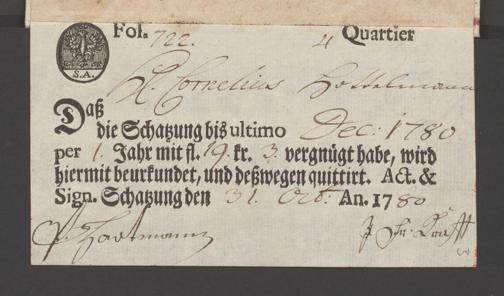 Fol. 722. 4 Quartier
S.A.
H. Cornelius Hottelmann
Daß
die Schatzung bis ultimo Dec: 1780
per 1. Jahr mit fl. 19. kr. 3. vergnügt habe, wird
hiermit beurkundet, und deßwegen quittirt. Act. &
Sign. Schatzung den 31. Oct: An. 1780
Hartmann
Krafft